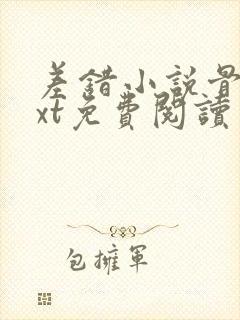 差錯小説骨
xt免費閱讀
包擁軍